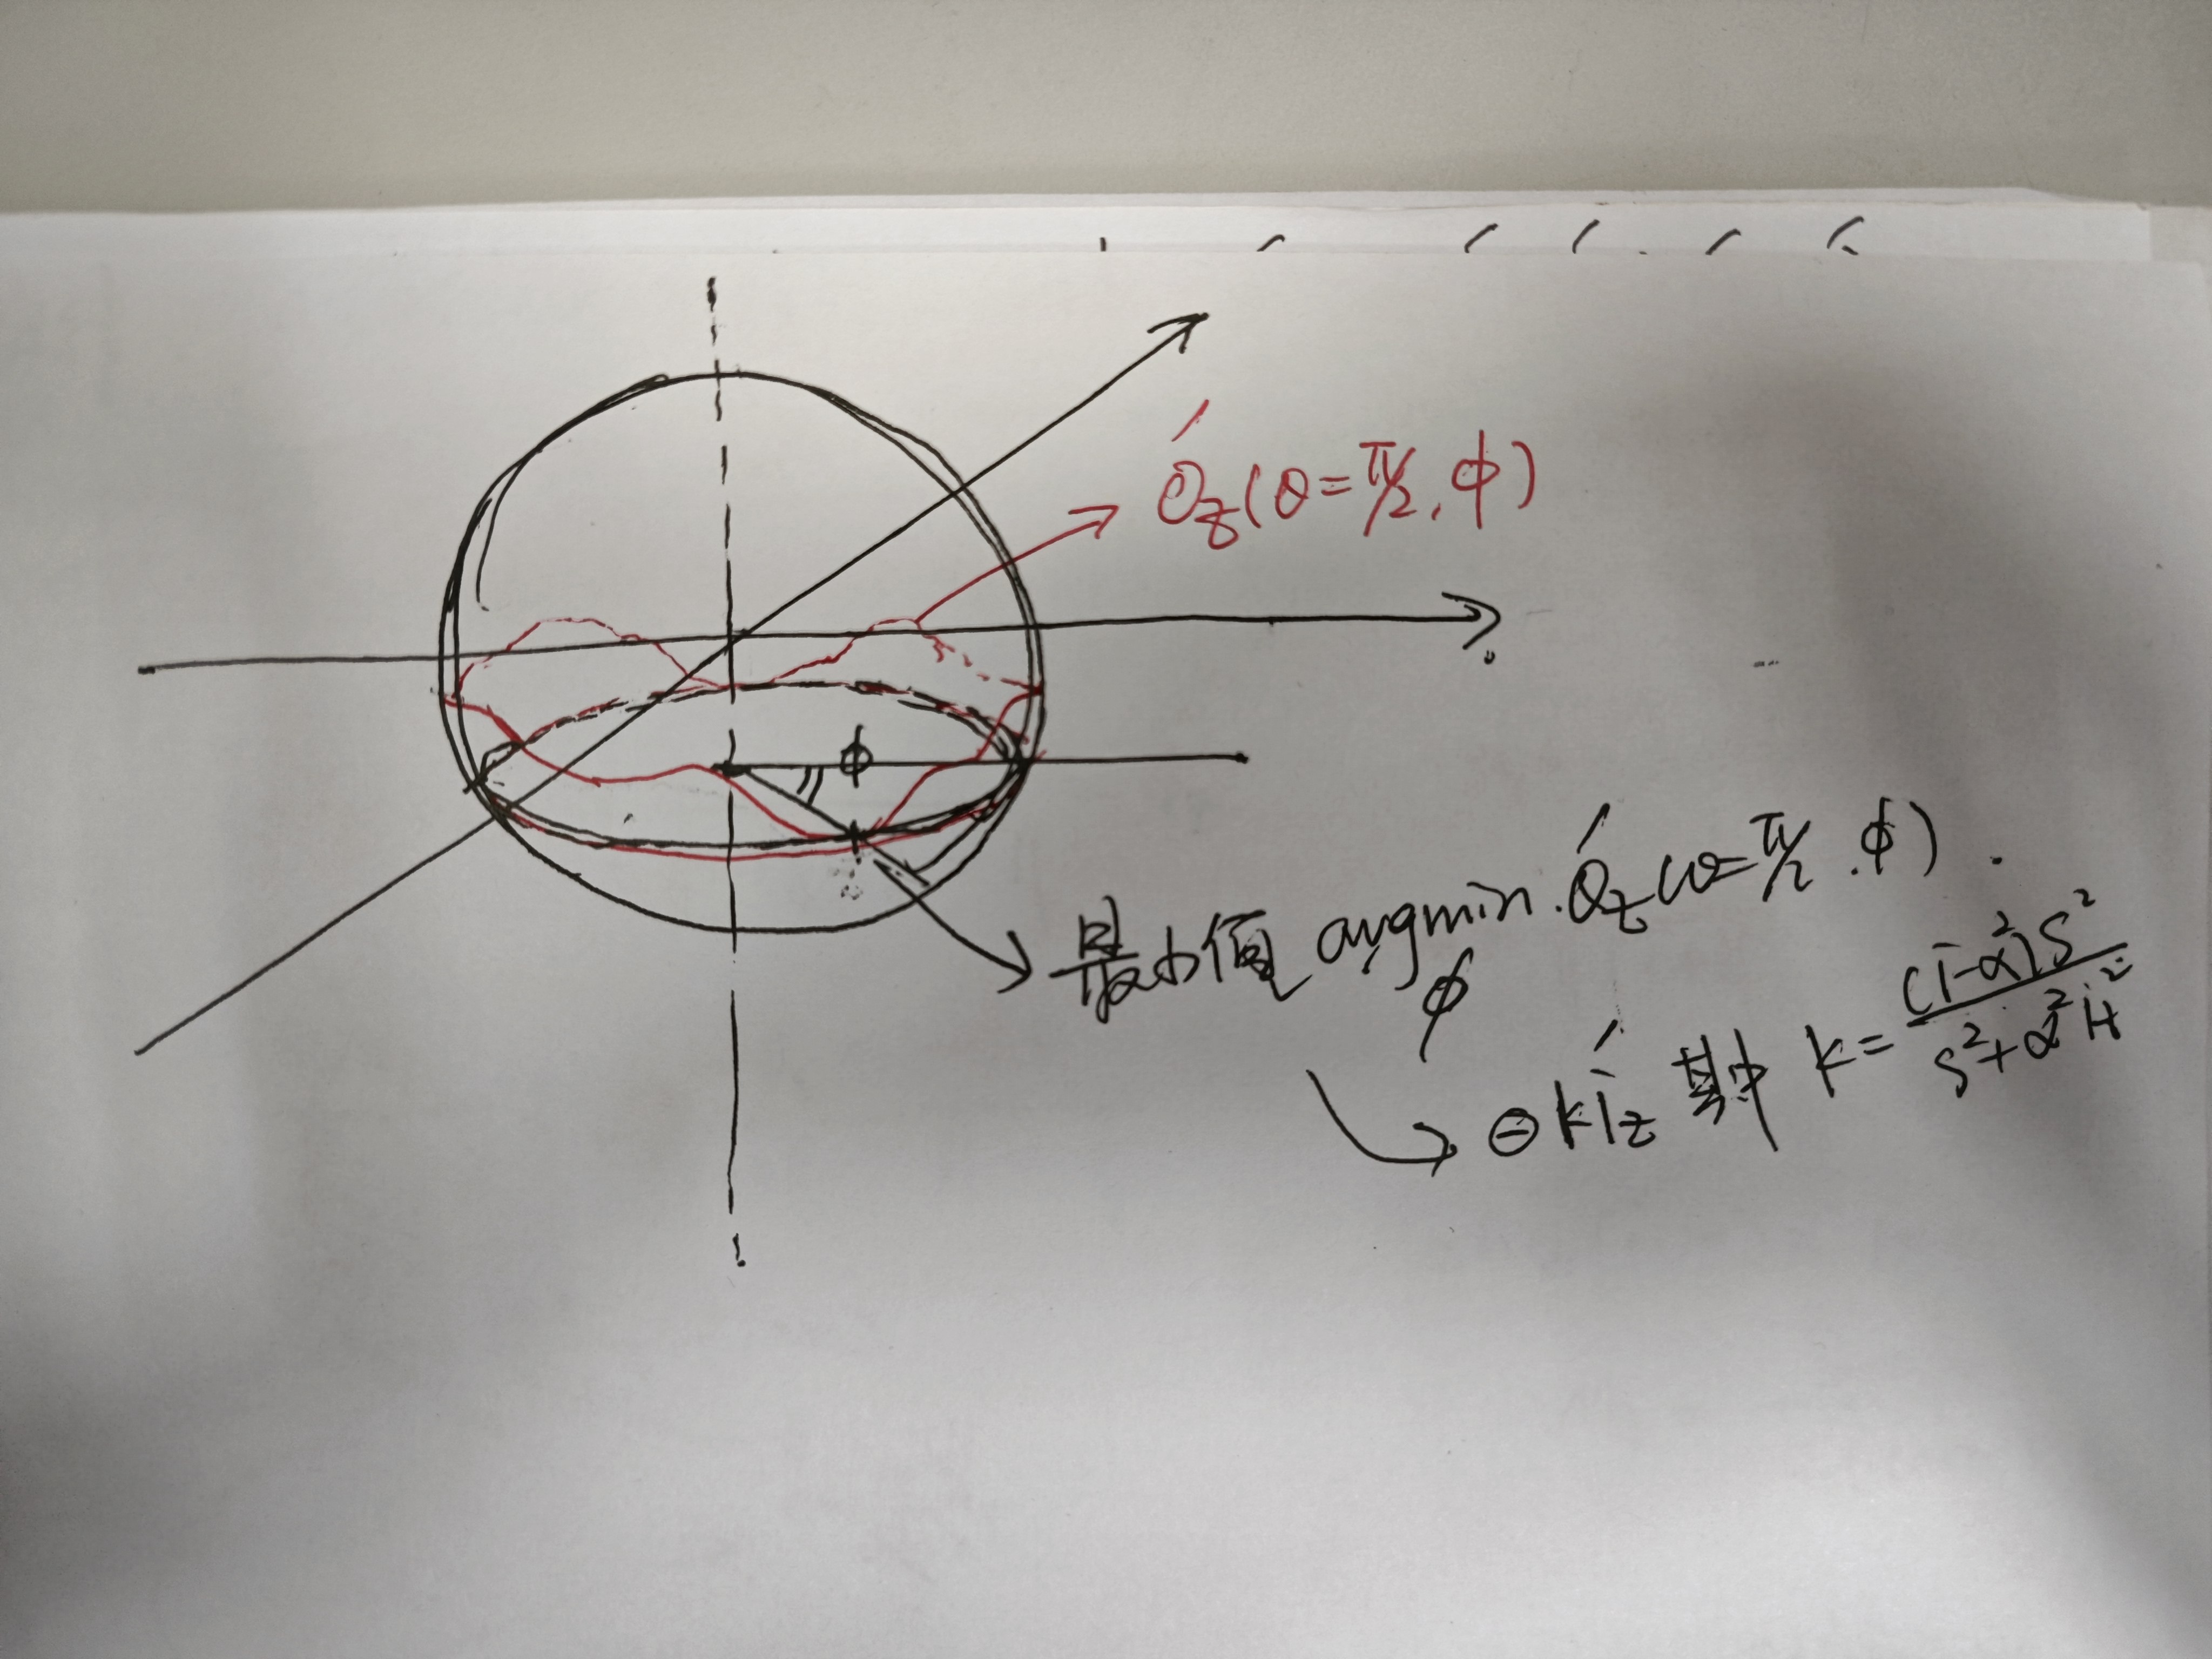 Óz(θ=π/2, ϕ)
ϕ
最小值 argmin Óz(θ=π/2, ϕ).
ϕ
⊖kÍz 其中 k=(1-α²)S²/S²+α²H²